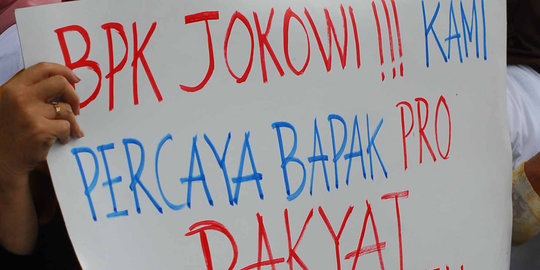 BPK JOKOWI !!! KAMI
PERCAYA BAPAK PRO
RAKYAT